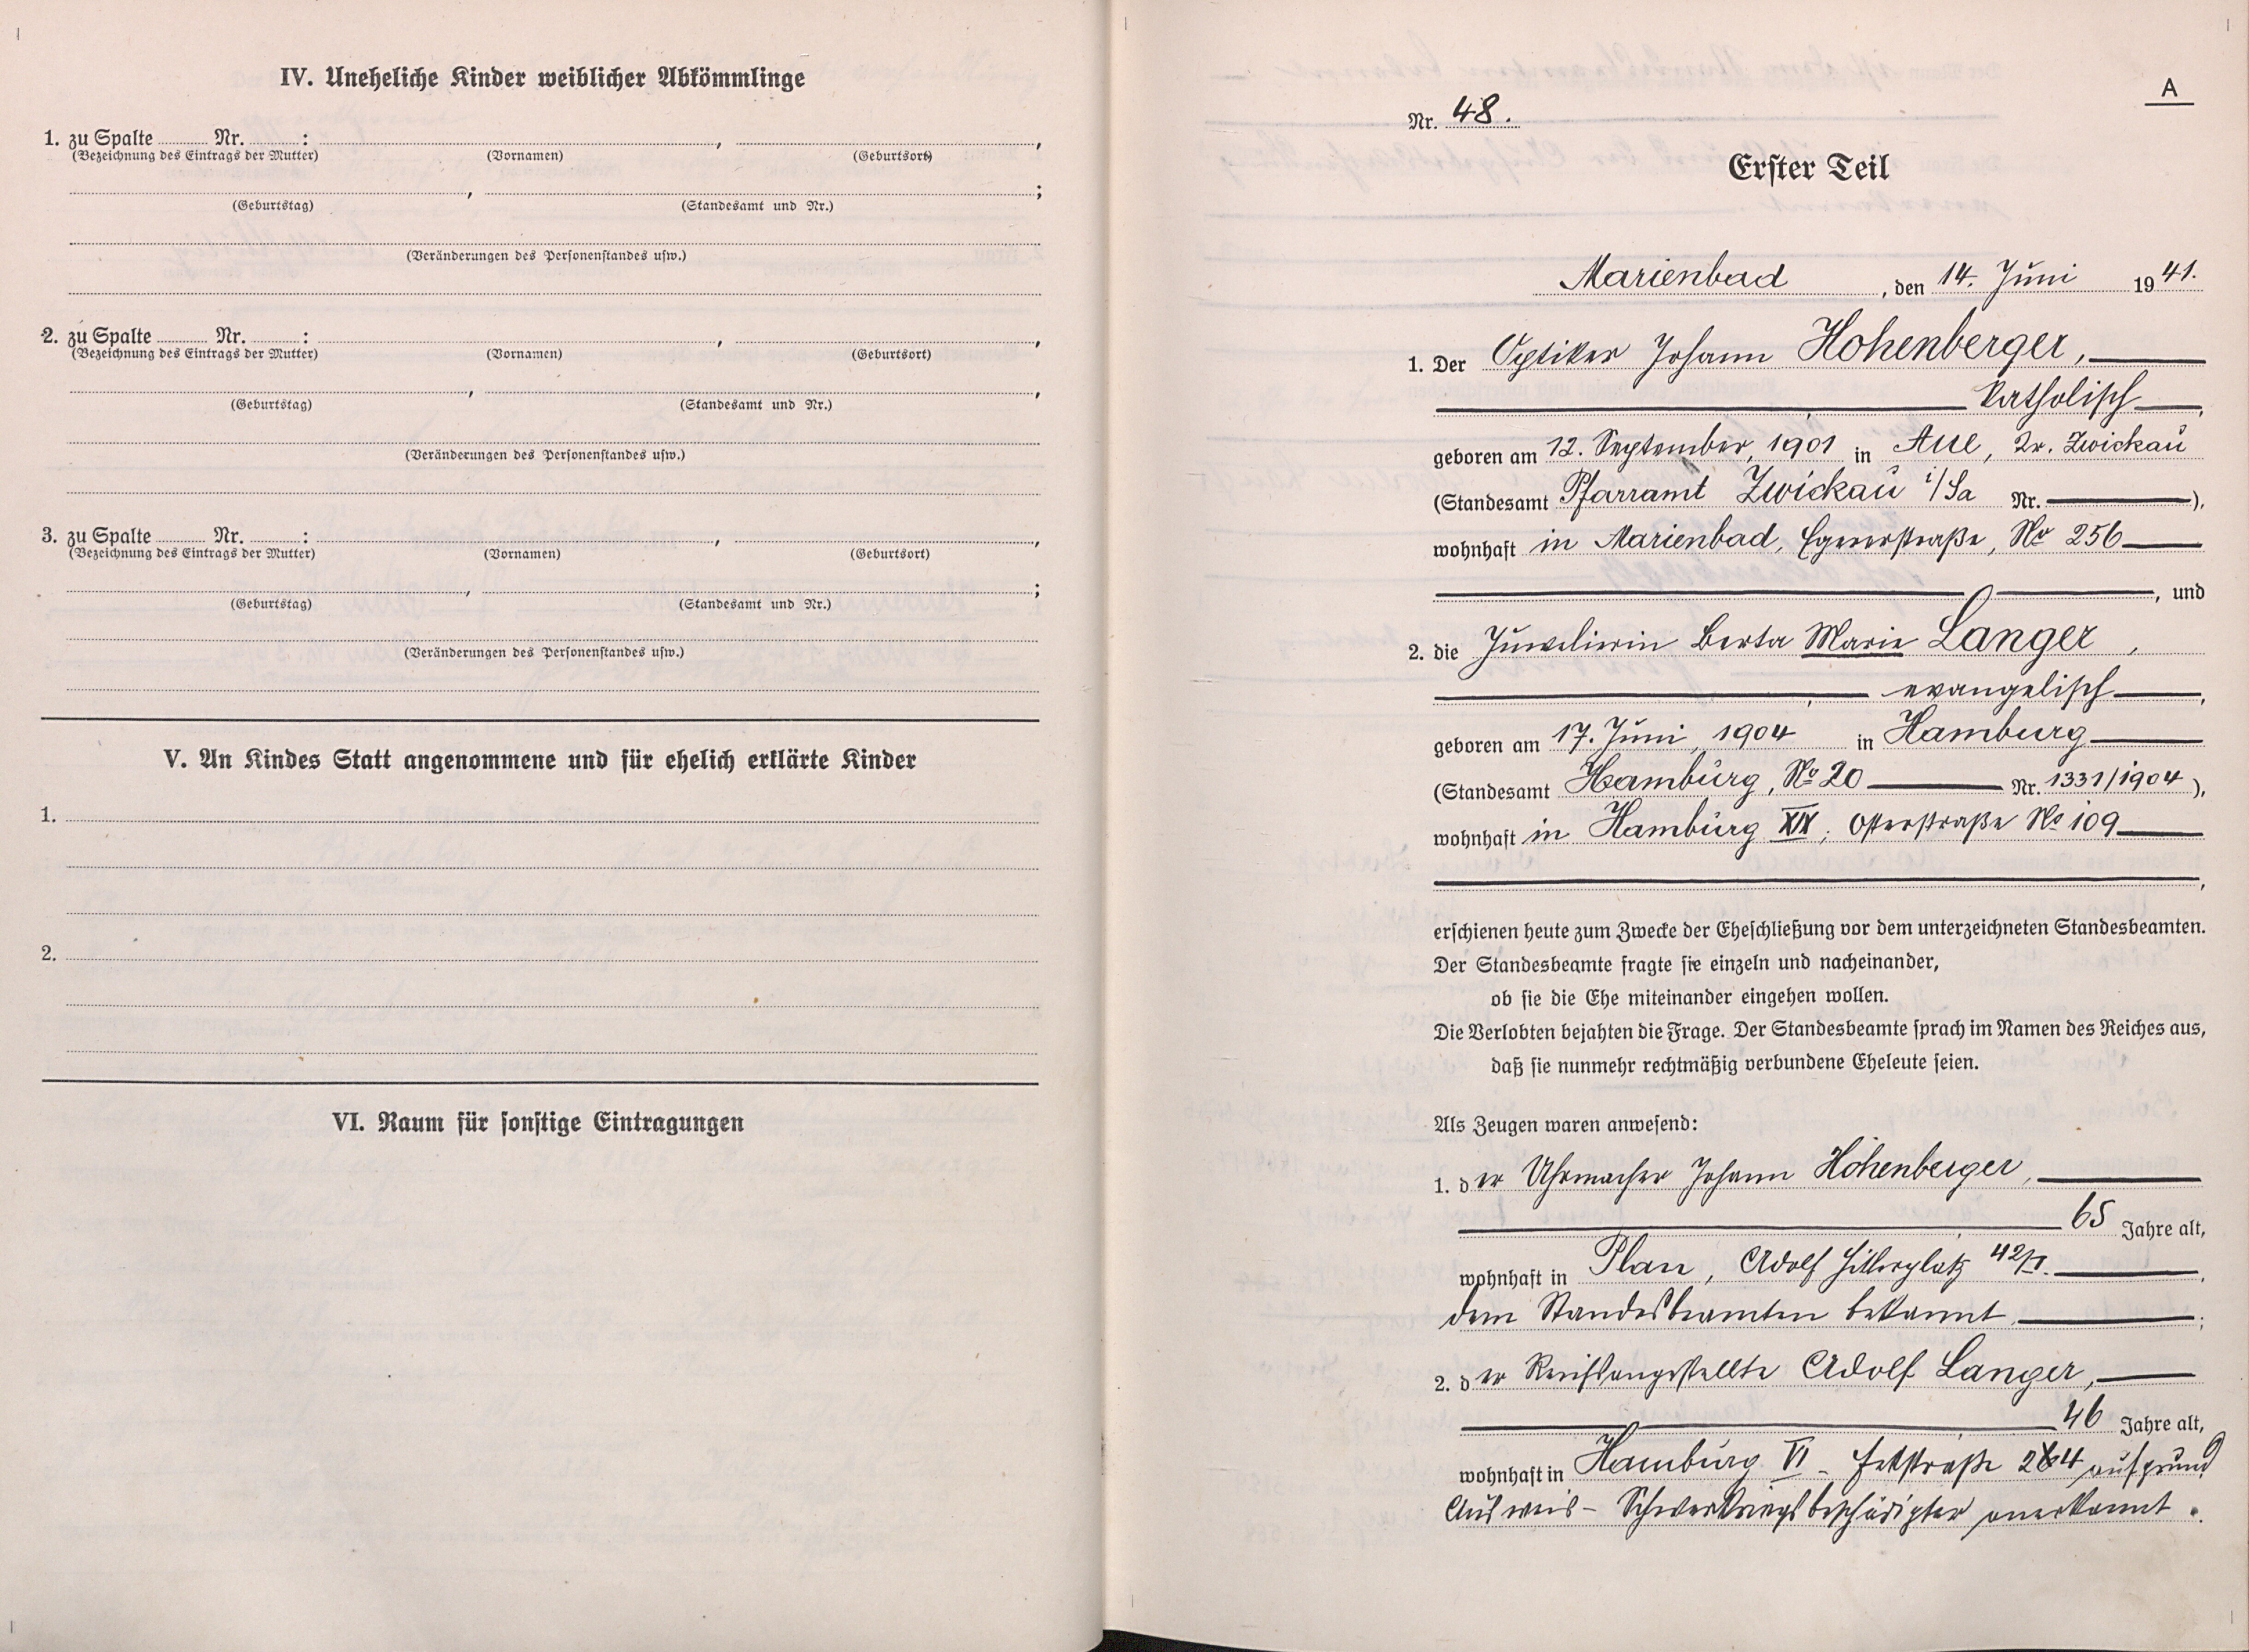 IV. Uneheliche Kinder weiblicher Abkömmlinge
1. zu Spalte Nr. : , ,
(Bezeichnung des Eintrags der Mutter) (Vornamen) (Geburtsort)
, ;
(Geburtstag) (Standesamt und Nr.)
(Veränderungen des Personenstandes usw.)
2. zu Spalte Nr. : , ,
(Bezeichnung des Eintrags der Mutter) (Vornamen) (Geburtsort)
, ,
(Geburtstag) (Standesamt und Nr.)
(Veränderungen des Personenstandes usw.)
3. zu Spalte Nr. : , ,
(Bezeichnung des Eintrags der Mutter) (Vornamen) (Geburtsort)
, ;
(Geburtstag) (Standesamt und Nr.)
(Veränderungen des Personenstandes usw.)
V. An Kindes Statt angenommene und für ehelich erklärte Kinder
1.
2.
VI. Raum für sonstige Eintragungen
A
Nr. 48.
Erster Teil
Marienbad, den 14. Juni 1941.
1. Der Optiker Johann Hohenberger,
katholisch,
geboren am 12. September, 1901 in Aue, Zwickau
(Standesamt Pfarramt Zwickau i/Sa Nr. ),
wohnhaft in Marienbad, Egererstraße, No 256
, und
2. die Juwelierin Berta Marie Langer,
evangelisch,
geboren am 17. Juni, 1904 in Hamburg
(Standesamt Hamburg, No 20 Nr. 1331/1904),
wohnhaft in Hamburg XIX, Osterstraße No 109
,
erschienen heute zum Zwecke der Eheschließung vor dem unterzeichneten Standesbeamten.
Der Standesbeamte fragte sie einzeln und nacheinander,
ob sie die Ehe miteinander eingehen wollen.
Die Verlobten bejahten die Frage. Der Standesbeamte sprach im Namen des Reiches aus,
daß sie nunmehr rechtmäßig verbundene Eheleute seien.
Als Zeugen waren anwesend:
1. der Uhrmacher Johann Hohenberger,
65 Jahre alt,
wohnhaft in Plan, Adolf Hitlerplatz 42/I.,
dem Standesbeamten bekannt;
2. der Reichsangestellte Adolf Langer,
46 Jahre alt,
wohnhaft in Hamburg VI - aufgrund
Ausweis - Schwerkriegsbeschädigter anerkannt.